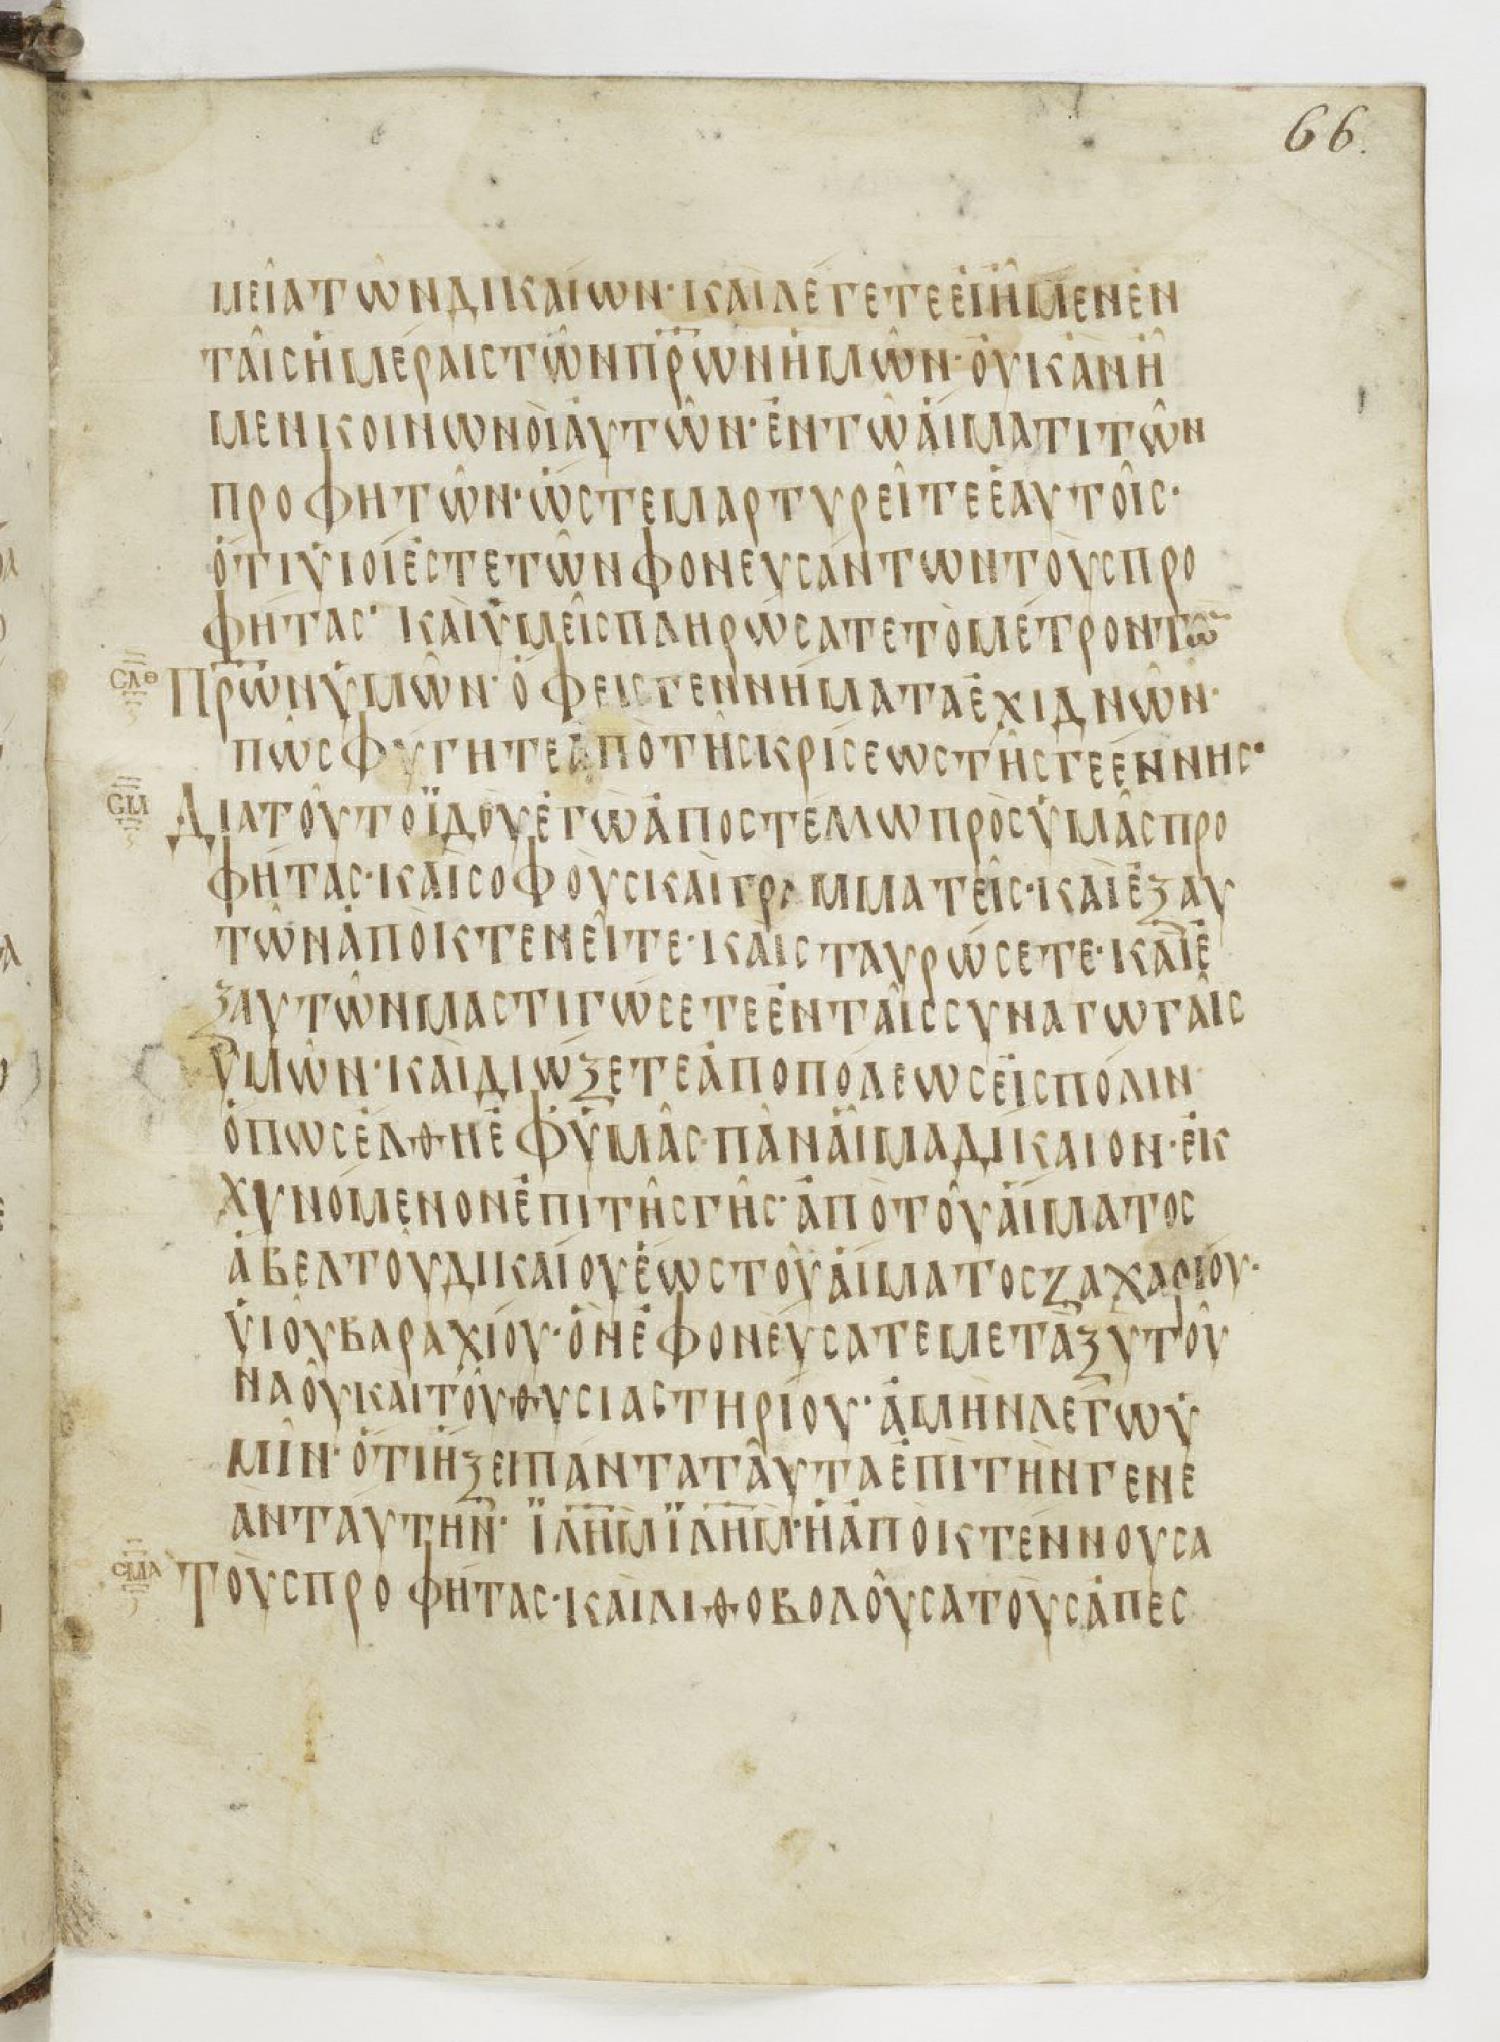 66.
μεῖα τῶν δικαίων· καὶ λέγετε εἰ ἦμεν ἐν
ταῖς ἡμέραις τῶν πρ̅ων ἡμῶν· οὐκ ἂν ἦ
μεν κοινωνοὶ αὐτῶν· ἐν τῶ αἵματι τῶν
προφητῶν· ὥστε μαρτυρεῖτε ἑαυτοῖς·
ὅτι υἱοί ἐστε τῶν φονευσάντων τοὺς προ
φήτας· καὶ ὑμεῖς πληρώσατε τὸ μέτρον τῶ̅
σλθ Πρ̅ων ὑμῶν· ὄφεις γεννήματα ἐχιδνῶν·
πῶς φύγητε ἀπὸ τῆς κρίσεως τῆς γεέννης·
σμ Διατοῦτο ἰδοὺ ἐγὼ ἀποστέλλω πρὸς ὑμᾶς προ
φήτας· καὶ σοφοὺς καὶ γραμματεῖς· καὶ ἐξ αυ
τῶν ἀποκτενεῖτε· καὶ σταυρώσετε· καὶ ἐ
ξ αυτῶν μαστιγώσετε ἐν ταῖς συναγωγαῖς
ὑμῶν· καὶ διώξετε ἀπο πόλεως εἰς πόλιν·
ὅπως ἔλθη ἐφ ὑμᾶς· πᾶν αἷμα δίκαιον· ἐκ
χυνόμενον ἐπι τῆς γῆς· ἀπὸ τοῦ αἵματος
ἄβελ τοῦ δικαίου ἕως τοῦ αἵματος ζαχαρίου·
υἱοῦ βαραχίου· ὃν ἐφονεύσατε μεταξυ τοῦ
ναοῦ καὶ τοῦ θυσιαστηρίου· ἀμὴν λέγω ὑ
μῖν· ὅτι ἥξει πάντα ταῦτα ἐπὶ τὴν γενε
ὰν ταύτην· ϊλ̅η̅μ̅ ϊλ̅η̅μ̅· ἡ ἀποκτέννουσα
σμα Τοὺς προφήτας· καὶ λιθοβολοῦσα τοὺς ἀπεσ